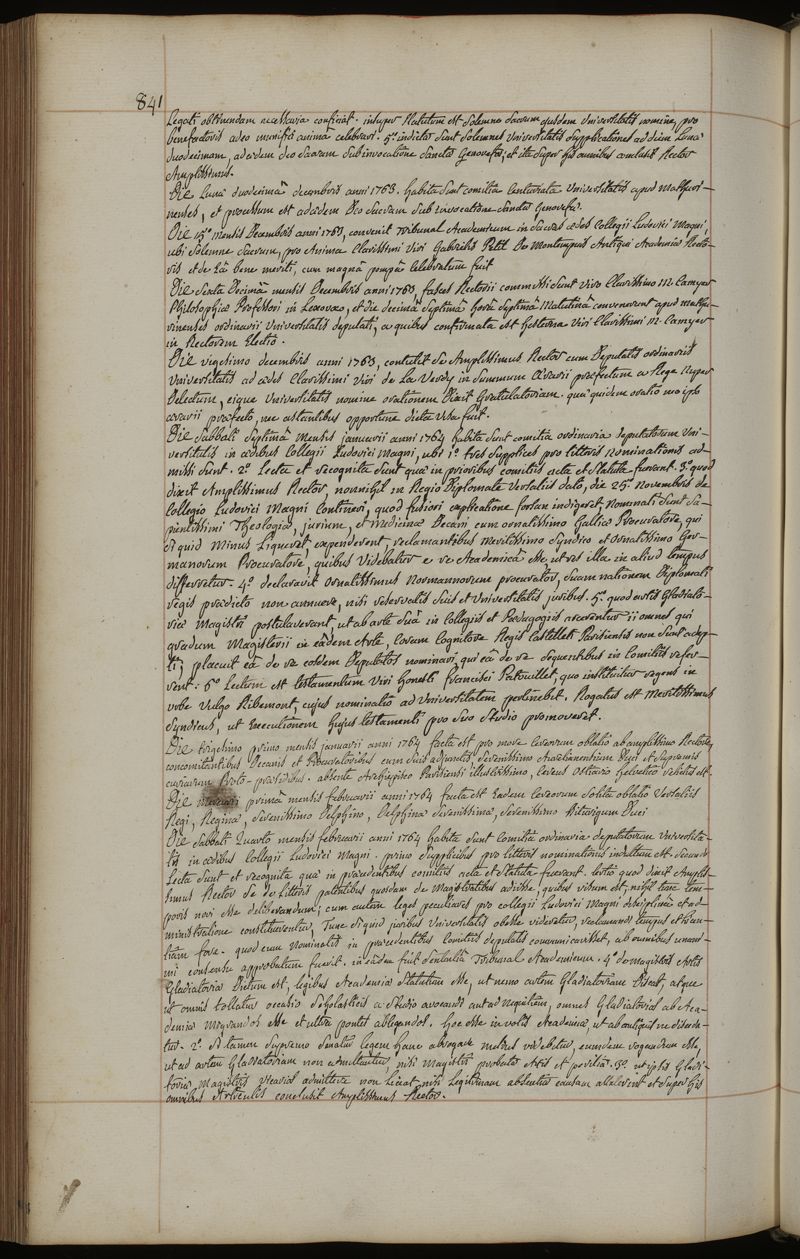 841
Legati obtinendam necessaria conficiat. insuper statutum est solemne sacrum ejusdem Universitatis nomine, pro
benefactoris adeo munifici animâ celebrari. 5º indictæ sunt solemnes Universitatis supplicationes ad diem Lunæ
duodecimam, ad ædem deo sacram sub invocatione sanctæ Genovefæ; et ita super his omnibus conclusit Rector
Amplissimus.
Die Lunæ duodecimâ decembris anni 1763. habita sunt comitia Centuriata Universitatis apud Mathuri-
nenses, et processum est ad ædem Deo sacram sub invocatione sanctæ Genovefæ.
Die 15â mensis Decembris anni 1763, convenit Tribunal Academicum in sacras ædes Collegii Ludovici Magni,
ubi solemne sacrum, pro Anima Clarissimi Viri Gabrielis Petit De Montempuis Antiqui Academiæ Recto-
ris et de eâ bene meriti, cum magnâ pompâ celebratum fuit
Die sexta Decimâ mensis Decembris anni 1763, fasces Rectorii commissi sunt viro Clarissimo M. Camyer
Philosophiæ Professori in Lexovæo, et die decimâ septimâ horâ septimâ matutinâ convenerunt apud mathu-
rinenses ordinarii Universitatis deputati, a quibus confirmata est hesterna Viri Clarissimi M. Camyer
in Rectorem Electio.
Die vigesimo decembris anni 1763, contulit se Amplissimus Rector cum Deputatis ordinariis
Universitatis ad ædes Clarissimi Viri de La Verdy in summum Ærarii præfectum a Rege nuper
Delectum, eique Universitatis nomine orationem Dixit Gratulatoriam. quæ quidem oratio ipso
ærarii præfecto, nec astantibus opportune dicta visa fuit.
Die sabbati septimâ mensis januarii anni 1764 habita sunt comitia ordinaria deputatorum Uni-
versitatis in ædibus Collegii Ludovici Magni, ubi 1º. tres supplices pro litteris nominationis ad-
missi sunt. 2º. Lecta et recognita sunt quæ in prioribus comitiis acta et statuta fuerant. 3º. quod
dixit Amplissimus Rector, nonnihil in Regio Diplomate Versaliis dato, die 25â novembris de
Collegio Ludovici Magni Contineri, quod fusiori explicatione forsan indigeret, nominati sunt sa-
pientissimi Theologiæ, jurium, et Medicinæ Decani cum ornatissimo Galliæ Procuratore, qui
si quid minus liqueret, expenderent, reclamantibus meritissimo Syndico et ornatissimo Ger-
manorum Procuratore, quibus videbatur e re Academicâ esse, ut res illa in aliud tempus
differretur. 4º. declaravit ornatissimus normannorum procurator, suam nationem Diplomati
regis prædicto non annuere, nisi reservatis suis et Universitatis juribus. 5º. quod artis Gladiato-
riæ Magistri postulaverant, ut ab arte suâ in Collegiis et Pædagogiis arcerentur ii omnes qui
gradum Magisterii in eâdem Arte, Coram Cognitore Regis Castelleti Parisiensis non sunt adep-
ti; placuit eâ de re eosdem Deputatos nominari, qui eâ de re sequentibus in Comitiis refer-
rent. 6º. Lectum est testamentum Viri honesti francisci Patouillet, quo instituitur in
urbe vulgo Ribemont, cujus nominatio ad Universitatem pertinebit. Rogatus est Meritissimus
Syndicus, ut Executionem hujus testamenti pro suo studio promoveret.
Die trigesimo primo mensis januarii anni 1764 facta est pro more cereorum oblatio ab amplissimo Rectore,
concomitantibus Decanis et Procuratoribus cum suis adjunctis, serenissimo Aurelianensium Duci et supremis
curiarum Proto-præsidibus. absente Archiepisco Parisiensi illustrissimo, cereus Ostiario helvetico relictus est.
Die primâ mensis februarii anni 1764 facta est Eadem cereorum solita oblatio Versaliis
Regi, Reginæ, serenissimo Delphino, Delphinæ serenissimæ, serenissimo Biturigum Duci
Die sabbati Quarto mensis februarii anni 1764 habita sunt Comitia ordinaria deputatorum Universita-
tis in ædibus Collegii Ludovici Magni. primo supplicibus pro litteris nominationis indultum est. secundo
Lecta sunt et recognita quæ in præcedentibus comitiis acta et statuta fuerant. tertio quod dixit Amplis-
simus Rector se de litteris patentibus quosdam de Magistratibus adiisse, quibus visum est, nihil hoc tem-
poris novi esse deliberandum; cum autem leges peculiares pro collegii Ludovici Magni disciplinâ et ad
ministratione constituerentur, Tunc si quid juribus Universitatis obesse videretur, reclamandi tempus et licen-
tiam fore. quod cum nominatis in præcedentibus Comitiis deputatis communicavisset, ab omnibus unani-
mi consensu approbatum fuerit. in eâdem fuit sententiâ Tribunal Academicum. 4º de magistris Artis
Gladiatoriæ Dictum est, legibus Academiæ statutum esse, ut nemo artem Gladiatoriam Disceat, atque
ut omnis tollatur occasio scholasticis a studio avocandi aut ad nequitiam, omnes Gladiatores ab Aca-
demia migrandos esse et ultra pontes ablegandos. hoc esse in votis Academiæ, ut ab antiqui ne disceda-
tur. 2º. si tamen supremo senatui legem hanc abrogare melius videbatur, eumdem rogandum esse,
ut ad artem Gladiatoriam non admittantur, nisi Magistri probatæ Artis et peritiæ. 3º. ut ipsis Gladi-
toriæ Magistris vicarios admittere non liceat, nisi legitimam absentiæ causam attulerint et super his
omnibus Articulis conclusit Amplissimus Rector.